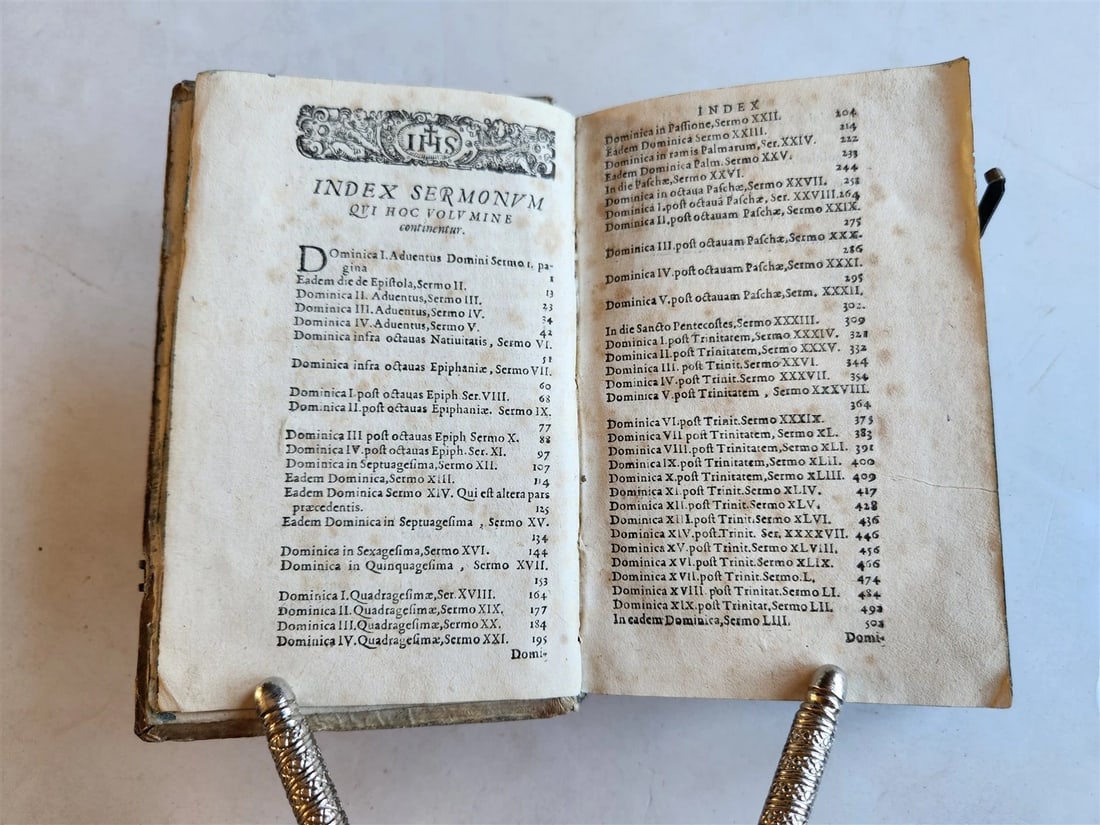 IHS
INDEX SERMONVM
QVI HOC VOLVMINE
continentur.
DOminica I. Aduentus Domini Sermo 1. pa-
gina 1
Eadem die de Epistola, Sermo II. 13
Dominica II. Aduentus, Sermo III. 23
Dominica III. Aduentus, Sermo IV. 34
Dominica IV. Aduentus, Sermo V. 42
Dominica infra octauas Natiuitatis, Sermo VI.
51
Dominica infra octauas Epiphaniæ, Sermo VII.
60
Dominica I. post octauas Epiph. Ser. VIII. 68
Dominica II. post octauas Epiphaniæ. Sermo IX.
77
Dominica III post octauas Epiph Sermo X. 88
Dominica IV. post octauas Epiph. Ser. XI. 97
Dominica in Septuagesima, Sermo XII. 107
Eadem Dominica, Sermo XIII. 114
Eadem Dominica Sermo XIV. Qui est altera pars
præcedentis. 125
Eadem Dominica in Septuagesima, Sermo XV.
134
Dominica in Sexagesima, Sermo XVI. 144
Dominica in Quinquagesima, Sermo XVII.
153
Dominica I. Quadragesimæ, Ser. XVIII. 164
Dominica II. Quadragesimæ, Sermo XIX. 177
Dominica III. Quadragesimæ, Sermo XX. 184
Dominica IV. Quadragesimæ, Sermo XXI. 195
Domi-
INDEX
Dominica in Passione, Sermo XXII. 204
Eadem Dominica Sermo XXIII. 214
Dominica in ramis Palmarum, Ser. XXIV. 222
Eadem Dominica Palm. Sermo XXV. 233
In die Paschæ, Sermo XXVI. 244
Dominica in octaua Paschæ, Sermo XXVII. 258
Dominica I. post octauā Paschæ, Ser. XXVIII. 264
Dominica II. post octauam Paschæ, Sermo XXIX.
275
Dominica III. post octauam Paschæ, Sermo XXX.
286
Dominica IV. post octauam Paschæ, Sermo XXXI.
295
Dominica V. post octauam Paschæ, Serm. XXXII.
302.
In die Sancto Pentecostes, Sermo XXXIII. 309
Dominica I. post Trinitatem, Sermo XXXIV. 321
Dominica II. post Trinitatem, Sermo XXXV. 332
Dominica III. post Trinit. Sermo XXVI. 344
Dominica IV. post Trinit. Sermo XXXVII. 354
Dominica V. post Trinitatem, Sermo XXXVIII.
364
Dominica VI. post Trinit. Sermo XXXIX. 375
Dominica VII post Trinitatem, Sermo XL. 383
Dominica VIII. post Trinitatem, Sermo XLI. 391
Dominica IX. post Trinitatem, Sermo XLII. 400
Dominica X. post Trinitatem, Sermo XLIII. 409
Dominica XI. post Trinit. Sermo XLIV. 417
Dominica XII. post Trinit. Sermo XLV. 428
Dominica XIII. post Trinit. Sermo XLVI. 436
Dominica XIV. post Trinit. Ser. XXXXVII. 446
Dominica XV. post Trinit. Sermo XLVIII. 456
Dominica XVI. post Trinit. Sermo XLIX. 466
Dominica XVII. post Trinit. Sermo L. 474
Dominica XVIII. post Trinitat. Sermo LI. 484
Dominica XIX. post Trinitat, Sermo LII. 492
In eadem Dominica, Sermo LIII. 502
Domi-